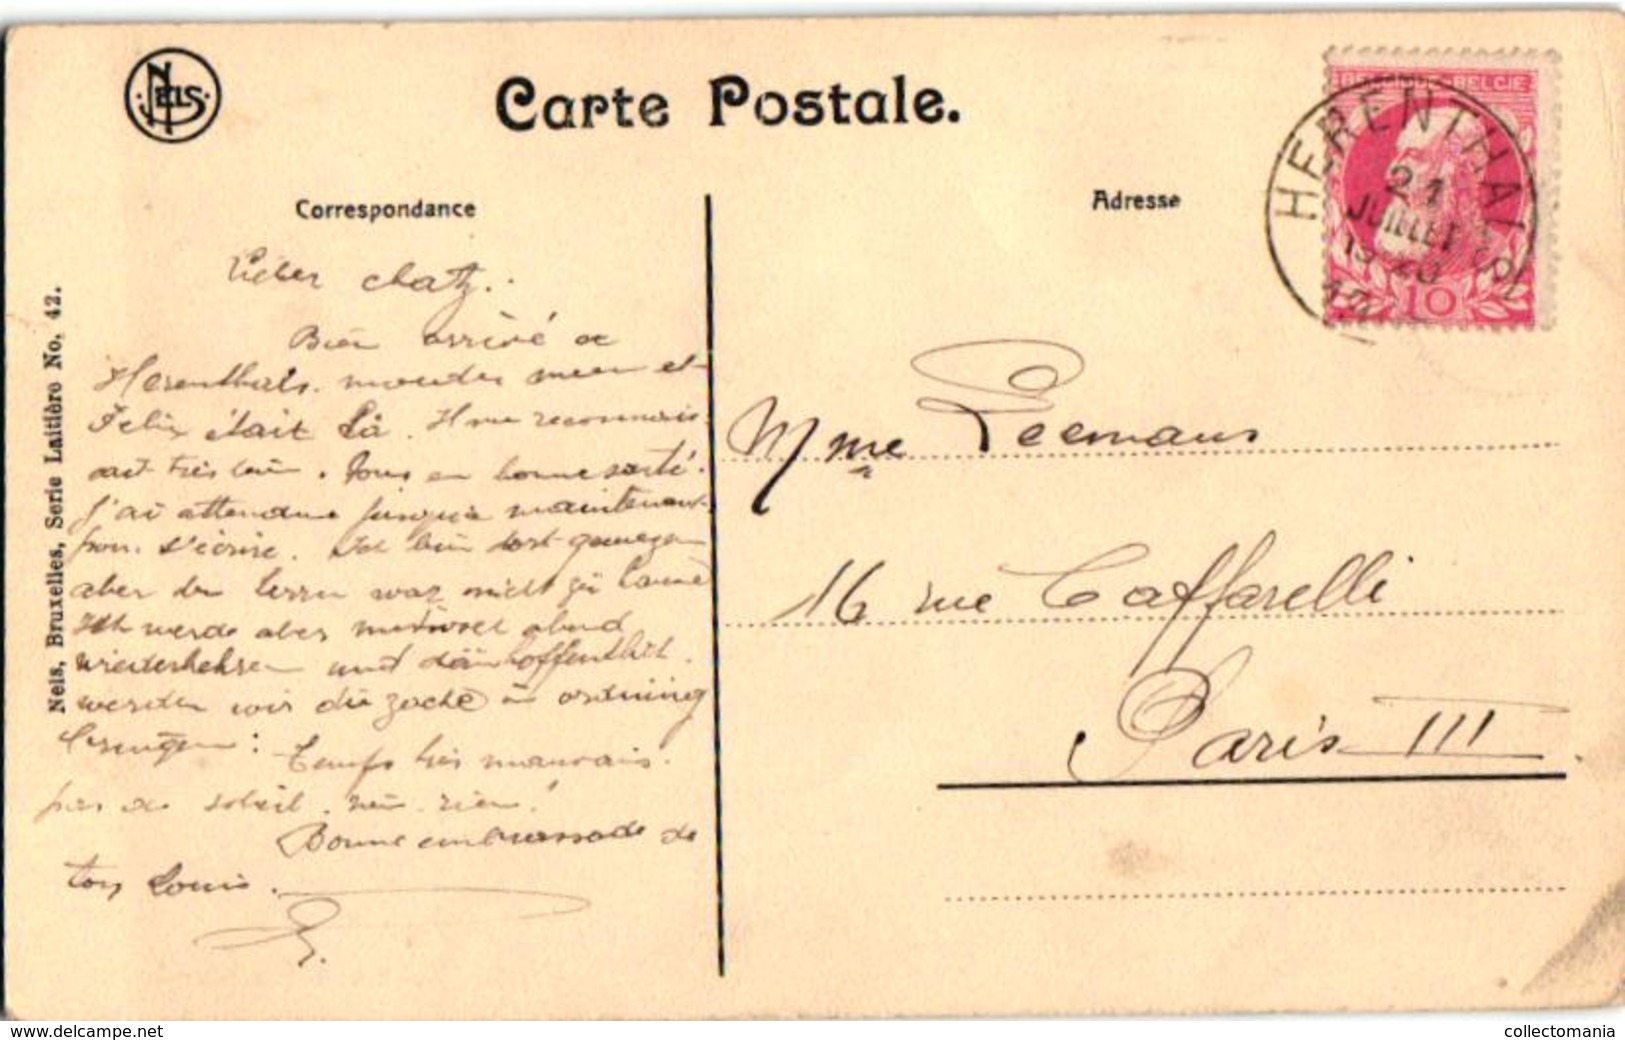 NELS
Carte Postale.
Correspondance
Adresse
BELGIE
10
HERENTHALS
21
JUILLET
Nels, Bruxelles, Serie Laitière No. 42.
Lieber chatz..
Bien arrivé a
Herenthals. et
Felix était là. Il me reconnais
ait très bien. Tous en bonne santé.
J'ai attendu jusqu'à maintenant
pour t'écrire. Ich bin dort gewesen
aber war nicht zu
Ich werde aber abend
wiederkehren und dann hoffentlich
werden wir die zache in ordnung
bringen: Temps très mauvais.
pas de soleil. rien. rien!
Bonne embrassade de
ton Louis.
Mme Leemans
16 rue Caffarelli
Paris III
www.delcampe.net
collectomania